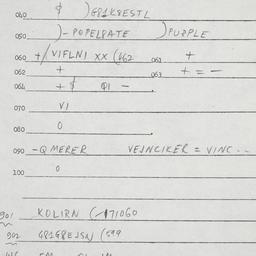 040 $ )G81K8ESTL
050 )-POPELPATE )PURPLE
060 +/VIFLNI XX (462 061 +
062 + 063 + = -
064 + $ QI -
070 VI
080 O
090 -QMERER VEJNCIKER = VINC--
100 O
901 KOLIRN (/171060
902 G81G8EJSN (599